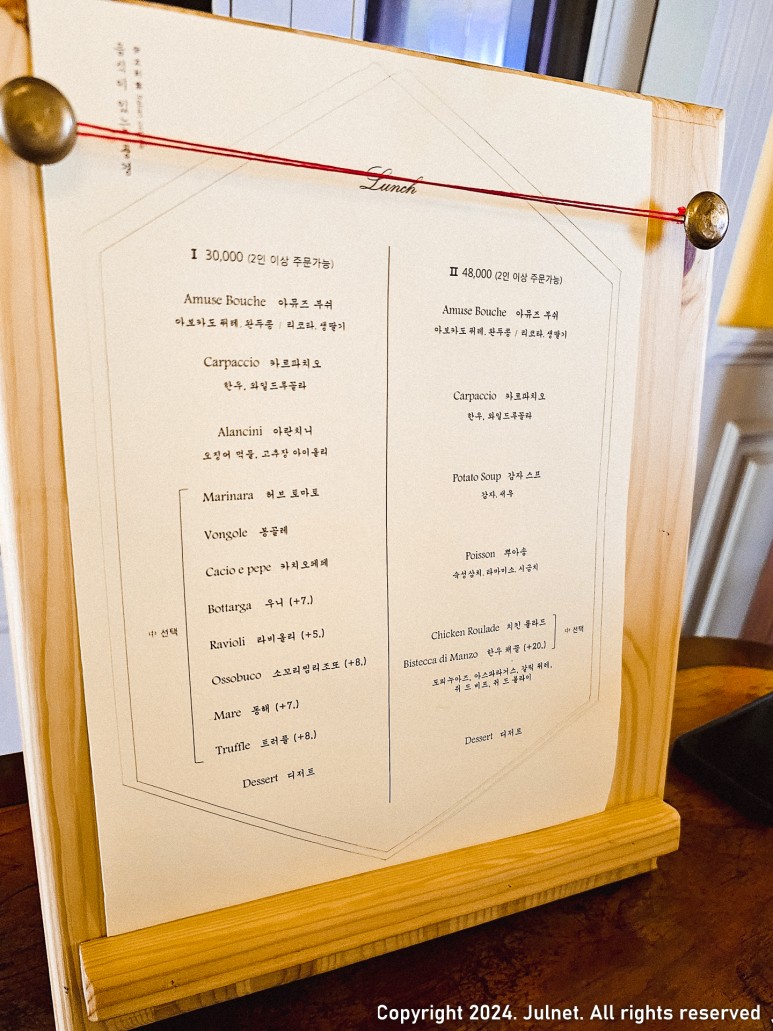 음식이 있는 풍경
Lunch
I 30,000 (2인 이상 주문가능)
Amuse Bouche 아뮤즈 부쉬
아보카도 퓌레, 완두콩 / 리코타, 생딸기
Carpaccio 카르파치오
한우, 와일드루꼴라
Alancini 아란치니
오징어 먹물, 고추장 아이올리
中 선택
Marinara 허브 토마토
Vongole 봉골레
Cacio e pepe 카치오페페
Bottarga 우니 (+7,)
Ravioli 라비올리 (+5,)
Ossobuco 소꼬리밀리조또 (+8,)
Mare 동해 (+7,)
Truffle 트러플 (+8,)
Dessert 디저트
II 48,000 (2인 이상 주문가능)
Amuse Bouche 아뮤즈 부쉬
아보카도 퓌레, 완두콩 / 리코타, 생딸기
Carpaccio 카르파치오
한우, 와일드루꼴라
Potato Soup 감자 스프
감자, 새우
Poisson 뿌아송
숙성삼치, 라따미소, 시금치
Chicken Roulade 치킨 룰라드
Bistecca di Manzo 한우 채끝 (+20,)
中 선택
도피누아즈, 아스파라거스, 갈릭 퓌레,
쥐 드 비프, 쥐 드 볼라이
Dessert 디저트
Copyright 2024. Julnet. All rights reserved